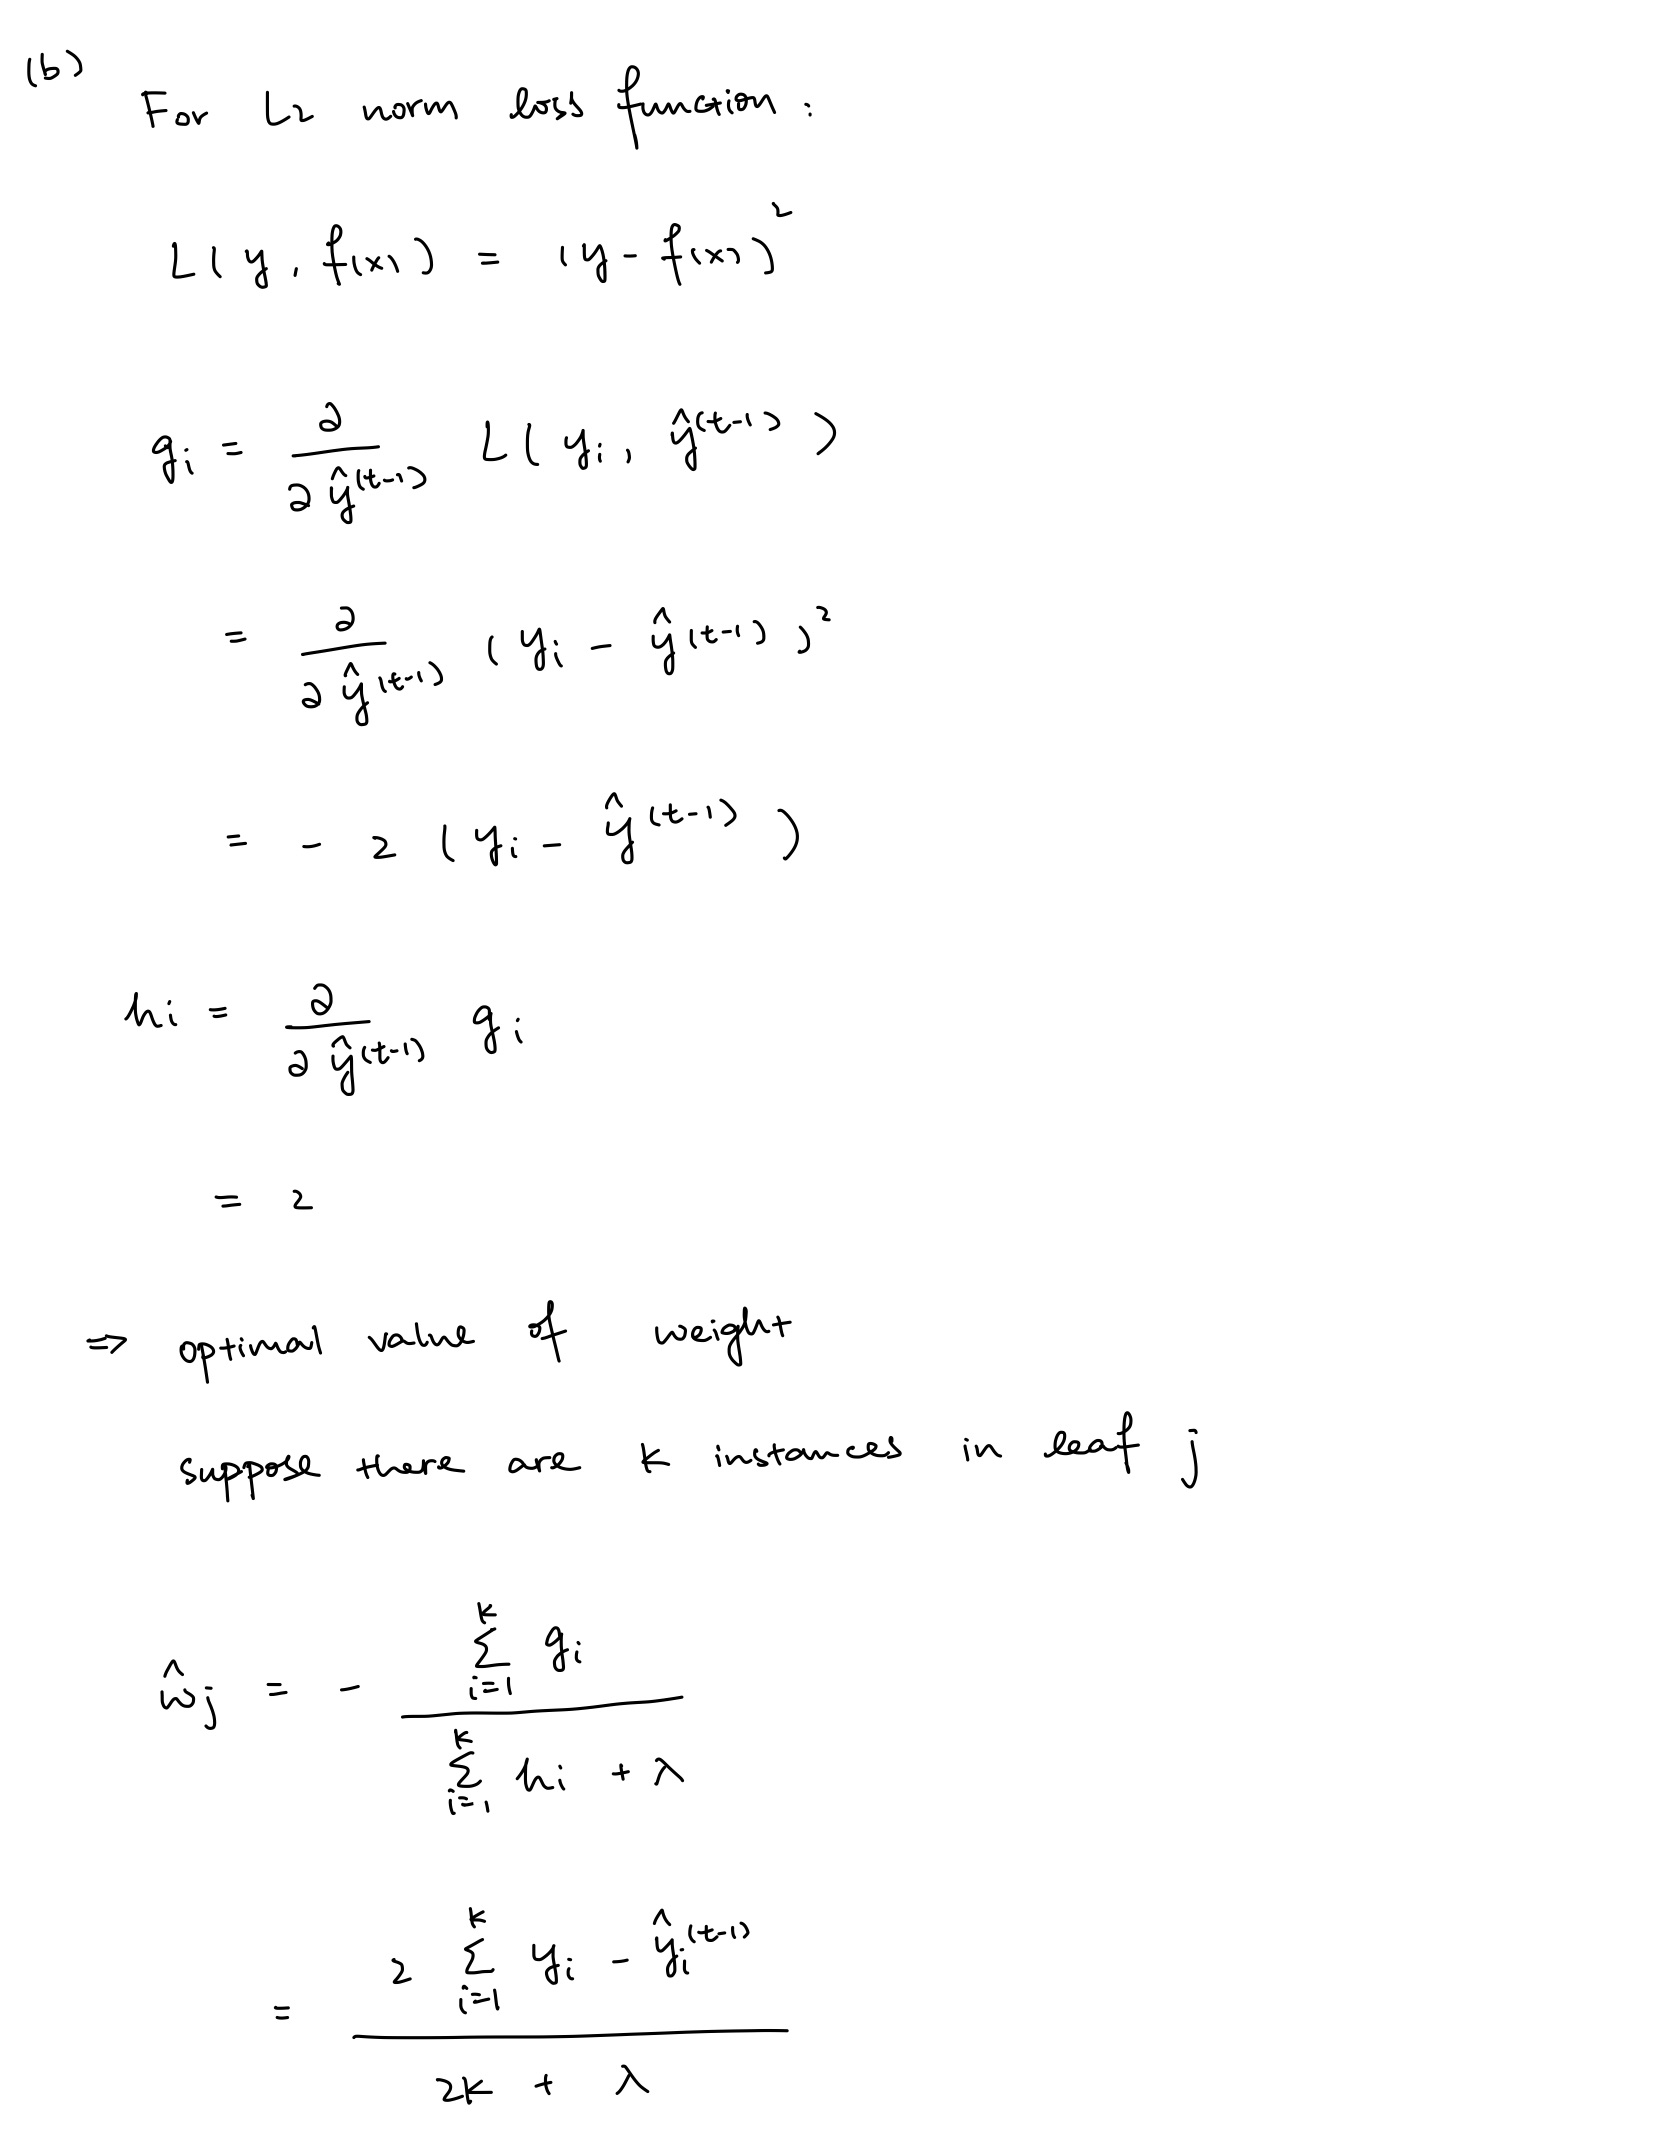 (b)
For L2 norm loss function :
L( y , f(x) ) = (y - f(x))²
gᵢ = ∂/∂ŷ⁽ᵗ⁻¹⁾ L( yᵢ , ŷ⁽ᵗ⁻¹⁾ )
= ∂/∂ŷ⁽ᵗ⁻¹⁾ ( yᵢ - ŷ⁽ᵗ⁻¹⁾ )²
= - 2 ( yᵢ - ŷ⁽ᵗ⁻¹⁾ )
hi = ∂/∂ŷ⁽ᵗ⁻¹⁾ gᵢ
= 2
⇒ optimal value of weight
suppose there are k instances in leaf j
ŵⱼ = - (∑_{i=1}^{k} gᵢ) / (∑_{i=1}^{k} hi + λ)
= (2 ∑_{i=1}^{k} yᵢ - ŷᵢ⁽ᵗ⁻¹⁾) / (2k + λ)